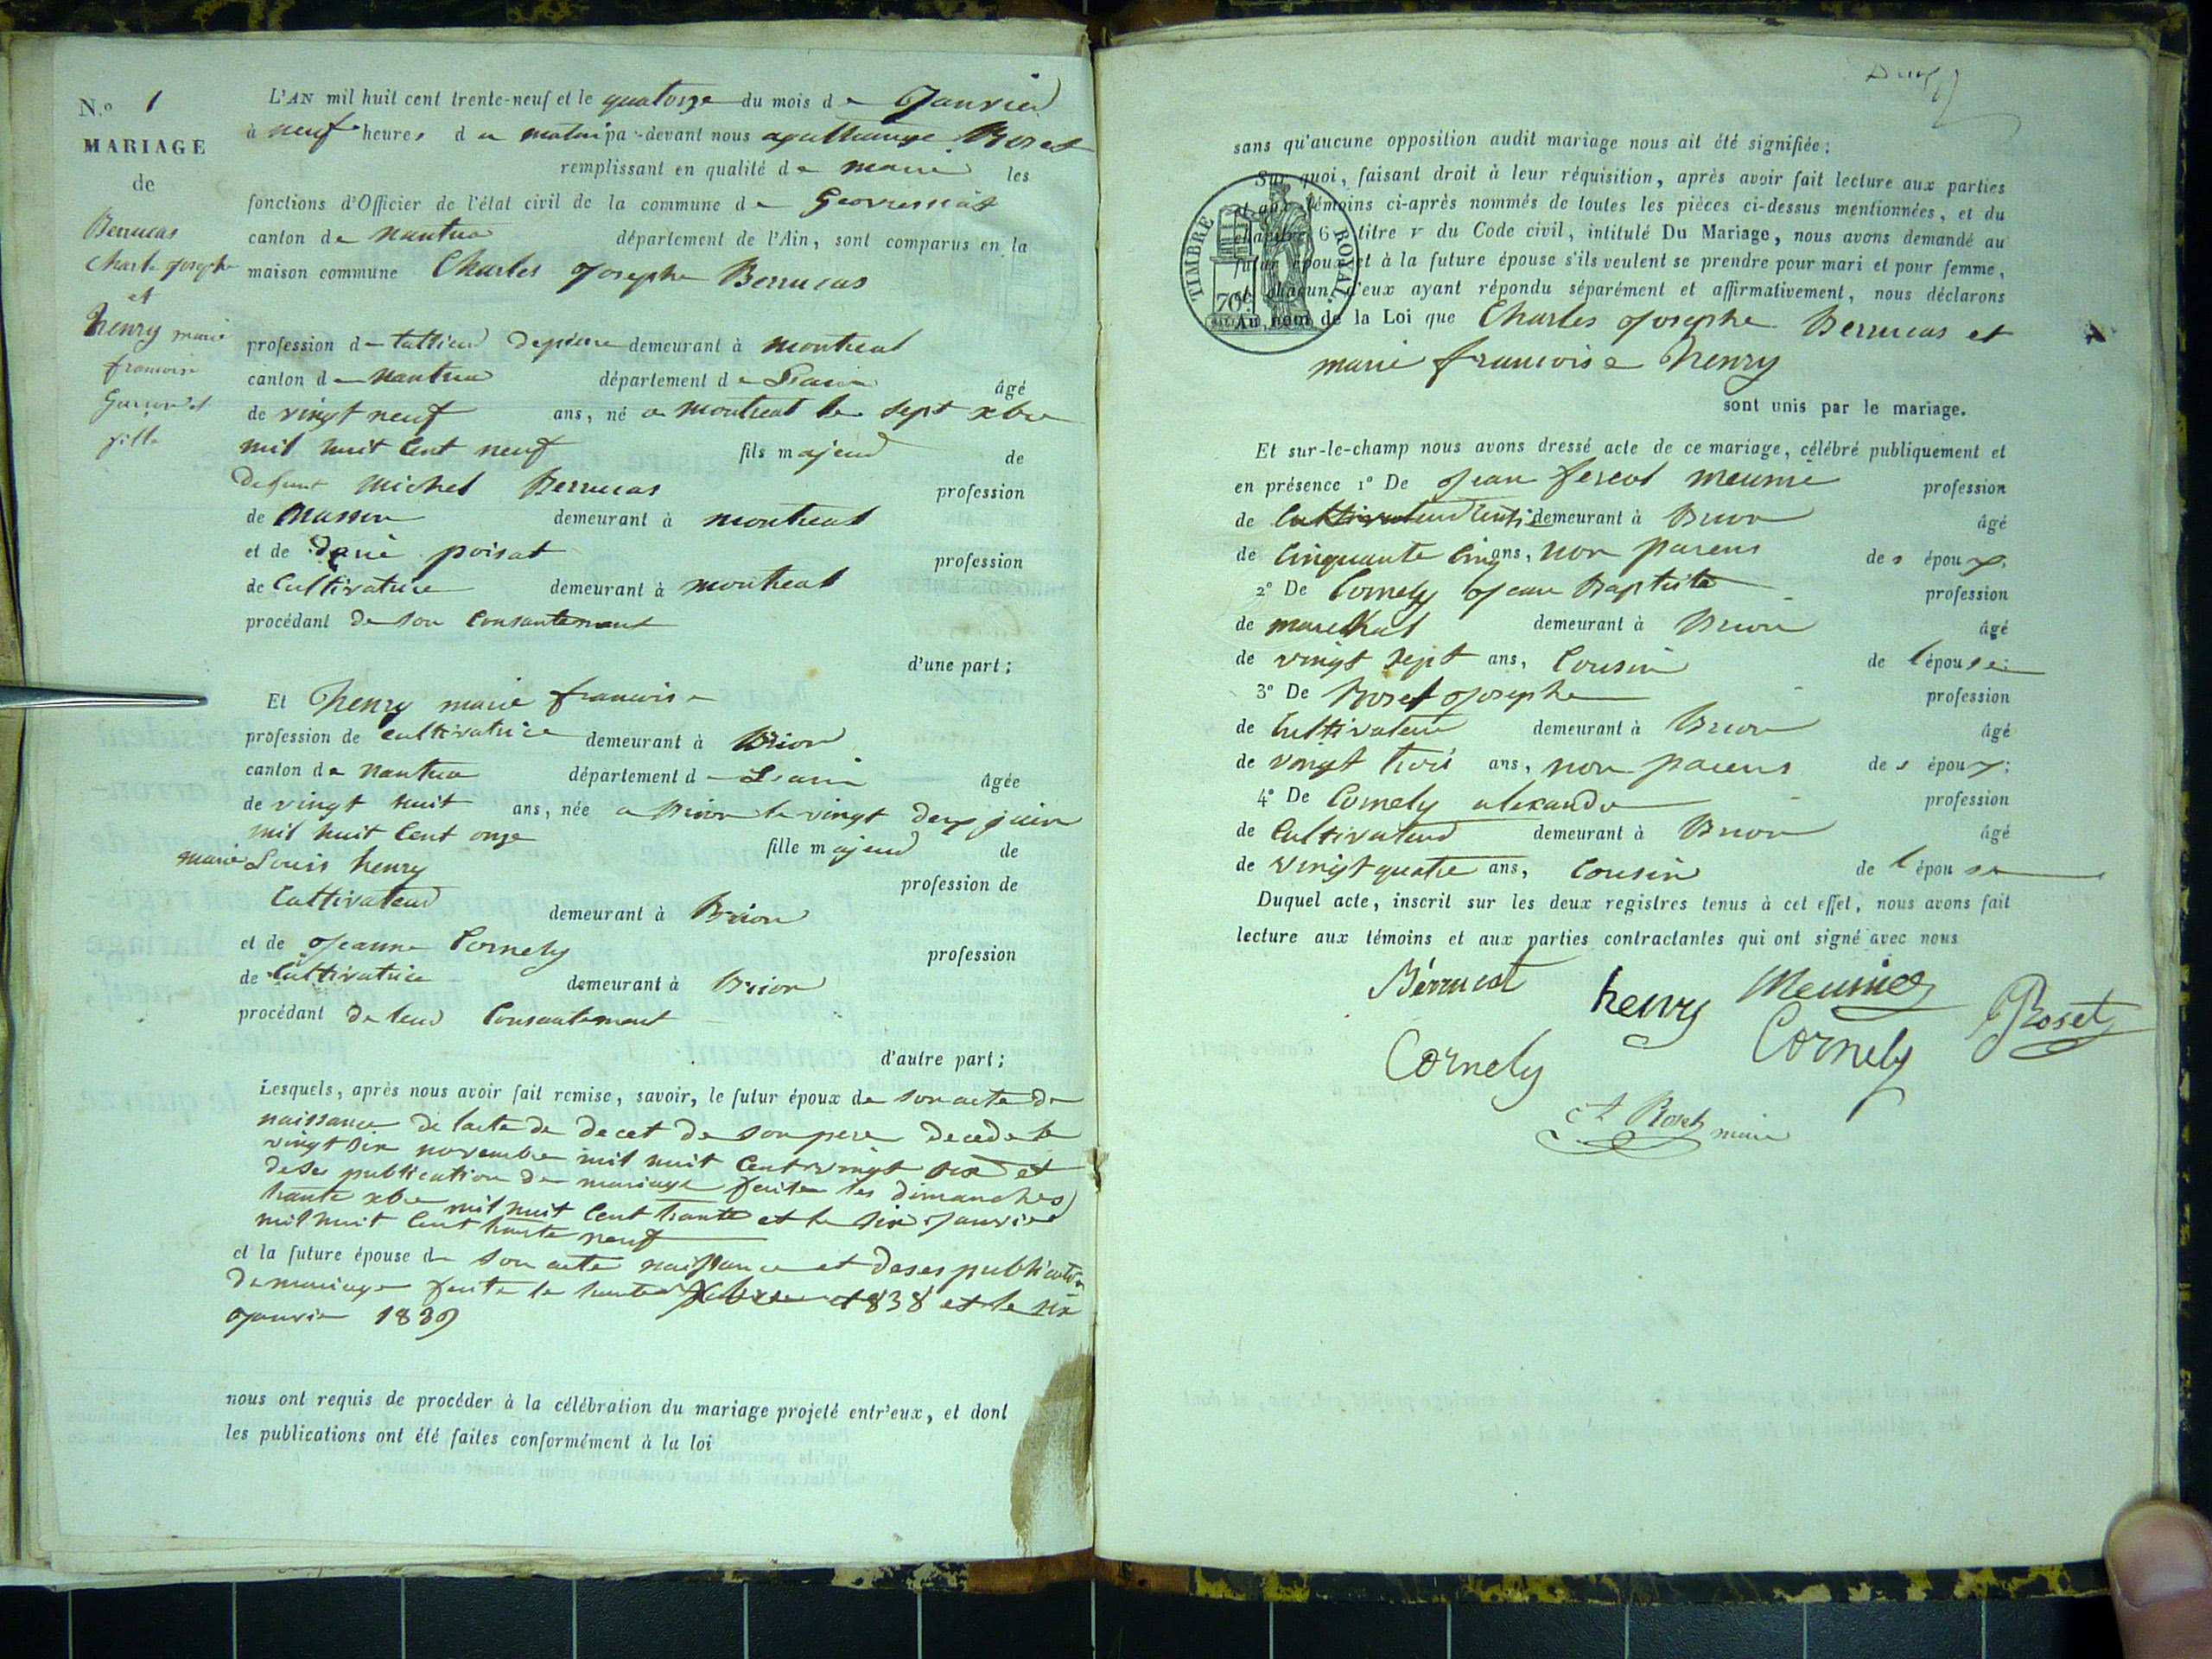 N.o 1
MARIAGE
de
Berrucas
Charle Josephe
et
henry marie
francoise
Garcon et
fille
L'AN mil huit cent trente-neuf et le quatorze du mois de Janvier
à neuf heures du matin par-devant nous agathange Roset
remplissant en qualité de maire les
fonctions d'Officier de l'état civil de la commune de Geovressiat
canton de Nantua département de l'Ain, sont comparus en la
maison commune Charles Josephe Berrucas
profession de tallieur de pierre demeurant à montreal
canton de Nantua département de Lain âgé
de vingt neuf ans, né a Montreal le sept xbre
mil huit Cent neuf fils majeur de
defunt Michel Berrucas profession
de Masson demeurant à montreal
et de poisat profession
de Cultivatrice demeurant à montreal
procédant de son Consantement
d'une part;
Et henry marie francoise
profession de cultivatrice demeurant à Brion
canton de Nantua département de Lain âgée
de vingt huit ans, née a Brion le vingt deux juin
mil huit Cent onze fille majeur de
marie Louis henry profession de
Cultivateur demeurant à Brion
et de Jeanne Cornely profession
de Cultivatrice demeurant à Brion
procédant de leur Consantement
d'autre part;
Lesquels, après nous avoir fait remise, savoir, le futur époux de son acte de
naissance de lacte de decet de son pere decede le
vingt six novembre mil huit Cent vingt six et
de ses publication de mariage faite les dimanches
trante xbre mil huit Cent trante et le six Janvier
mil huit Cent trante neuf
et la future épouse de son acte naissance et de ses publication
de mariage faite le trante xbre 1838 et le six
Janvier 1839
nous ont requis de procéder à la célébration du mariage projeté entr'eux, et dont
les publications ont été faites conformément à la loi
sans qu'aucune opposition audit mariage nous ait été signifiée;
TIMBRE ROYAL
70c
Sur quoi, faisant droit à leur réquisition, après avoir fait lecture aux parties
et aux témoins ci-après nommés de toutes les pièces ci-dessus mentionnées, et du
chapitre 6 titre v du Code civil, intitulé Du Mariage, nous avons demandé au
futur époux et à la future épouse s'ils veulent se prendre pour mari et pour femme,
et chacun d'eux ayant répondu séparément et affirmativement, nous déclarons
Au nom de la Loi que Charles Josephe Berrucas et
marie francoise henry
sont unis par le mariage.
Et sur-le-champ nous avons dressé acte de ce mariage, célébré publiquement et
en présence 1o De Jean fereol meunié profession
de Cultivateur demeurant à Brion âgé
de Cinquante Cinq ans, non parens des époux;
2o De Cornely Jean Baptiste profession
de marechal demeurant à Brion âgé
de vingt sept ans, Cousin de l'épouse;
3o De Roset Josephe profession
de Cultivateur demeurant à Brion âgé
de vingt trois ans, non parens des époux;
4o De Cornely alexandre profession
de Cultivateur demeurant à Brion âgé
de vingt quatre ans, Cousin de l'épouse
Duquel acte, inscrit sur les deux registres tenus à cet effet, nous avons fait
lecture aux témoins et aux parties contractantes qui ont signé avec nous
Bérrucat henry Meunier Roset
Cornely Cornely
A Roset maire